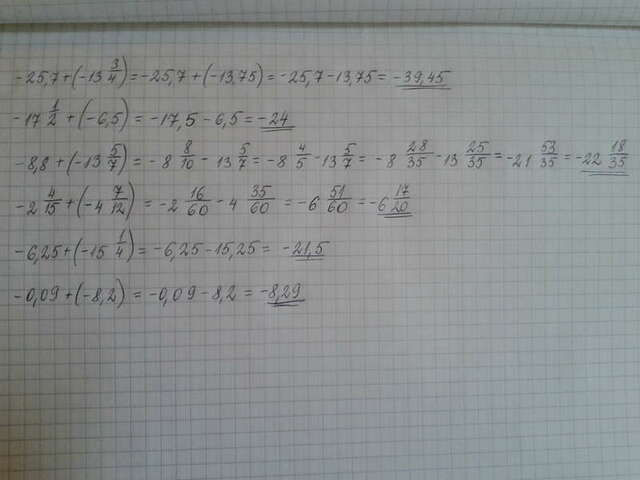 -25,7 + (-13 3/4) = -25,7 + (-13,75) = -25,7 - 13,75 = -39,45
-17 1/2 + (-6,5) = -17,5 - 6,5 = -24
-8,8 + (-13 5/7) = -8 8/10 - 13 5/7 = -8 4/5 - 13 5/7 = -8 28/35 - 13 25/35 = -21 53/35 = -22 18/35
-2 4/15 + (-4 7/12) = -2 16/60 - 4 35/60 = -6 51/60 = -6 17/20
-6,25 + (-15 1/4) = -6,25 - 15,25 = -21,5
-0,09 + (-8,2) = -0,09 - 8,2 = -8,29